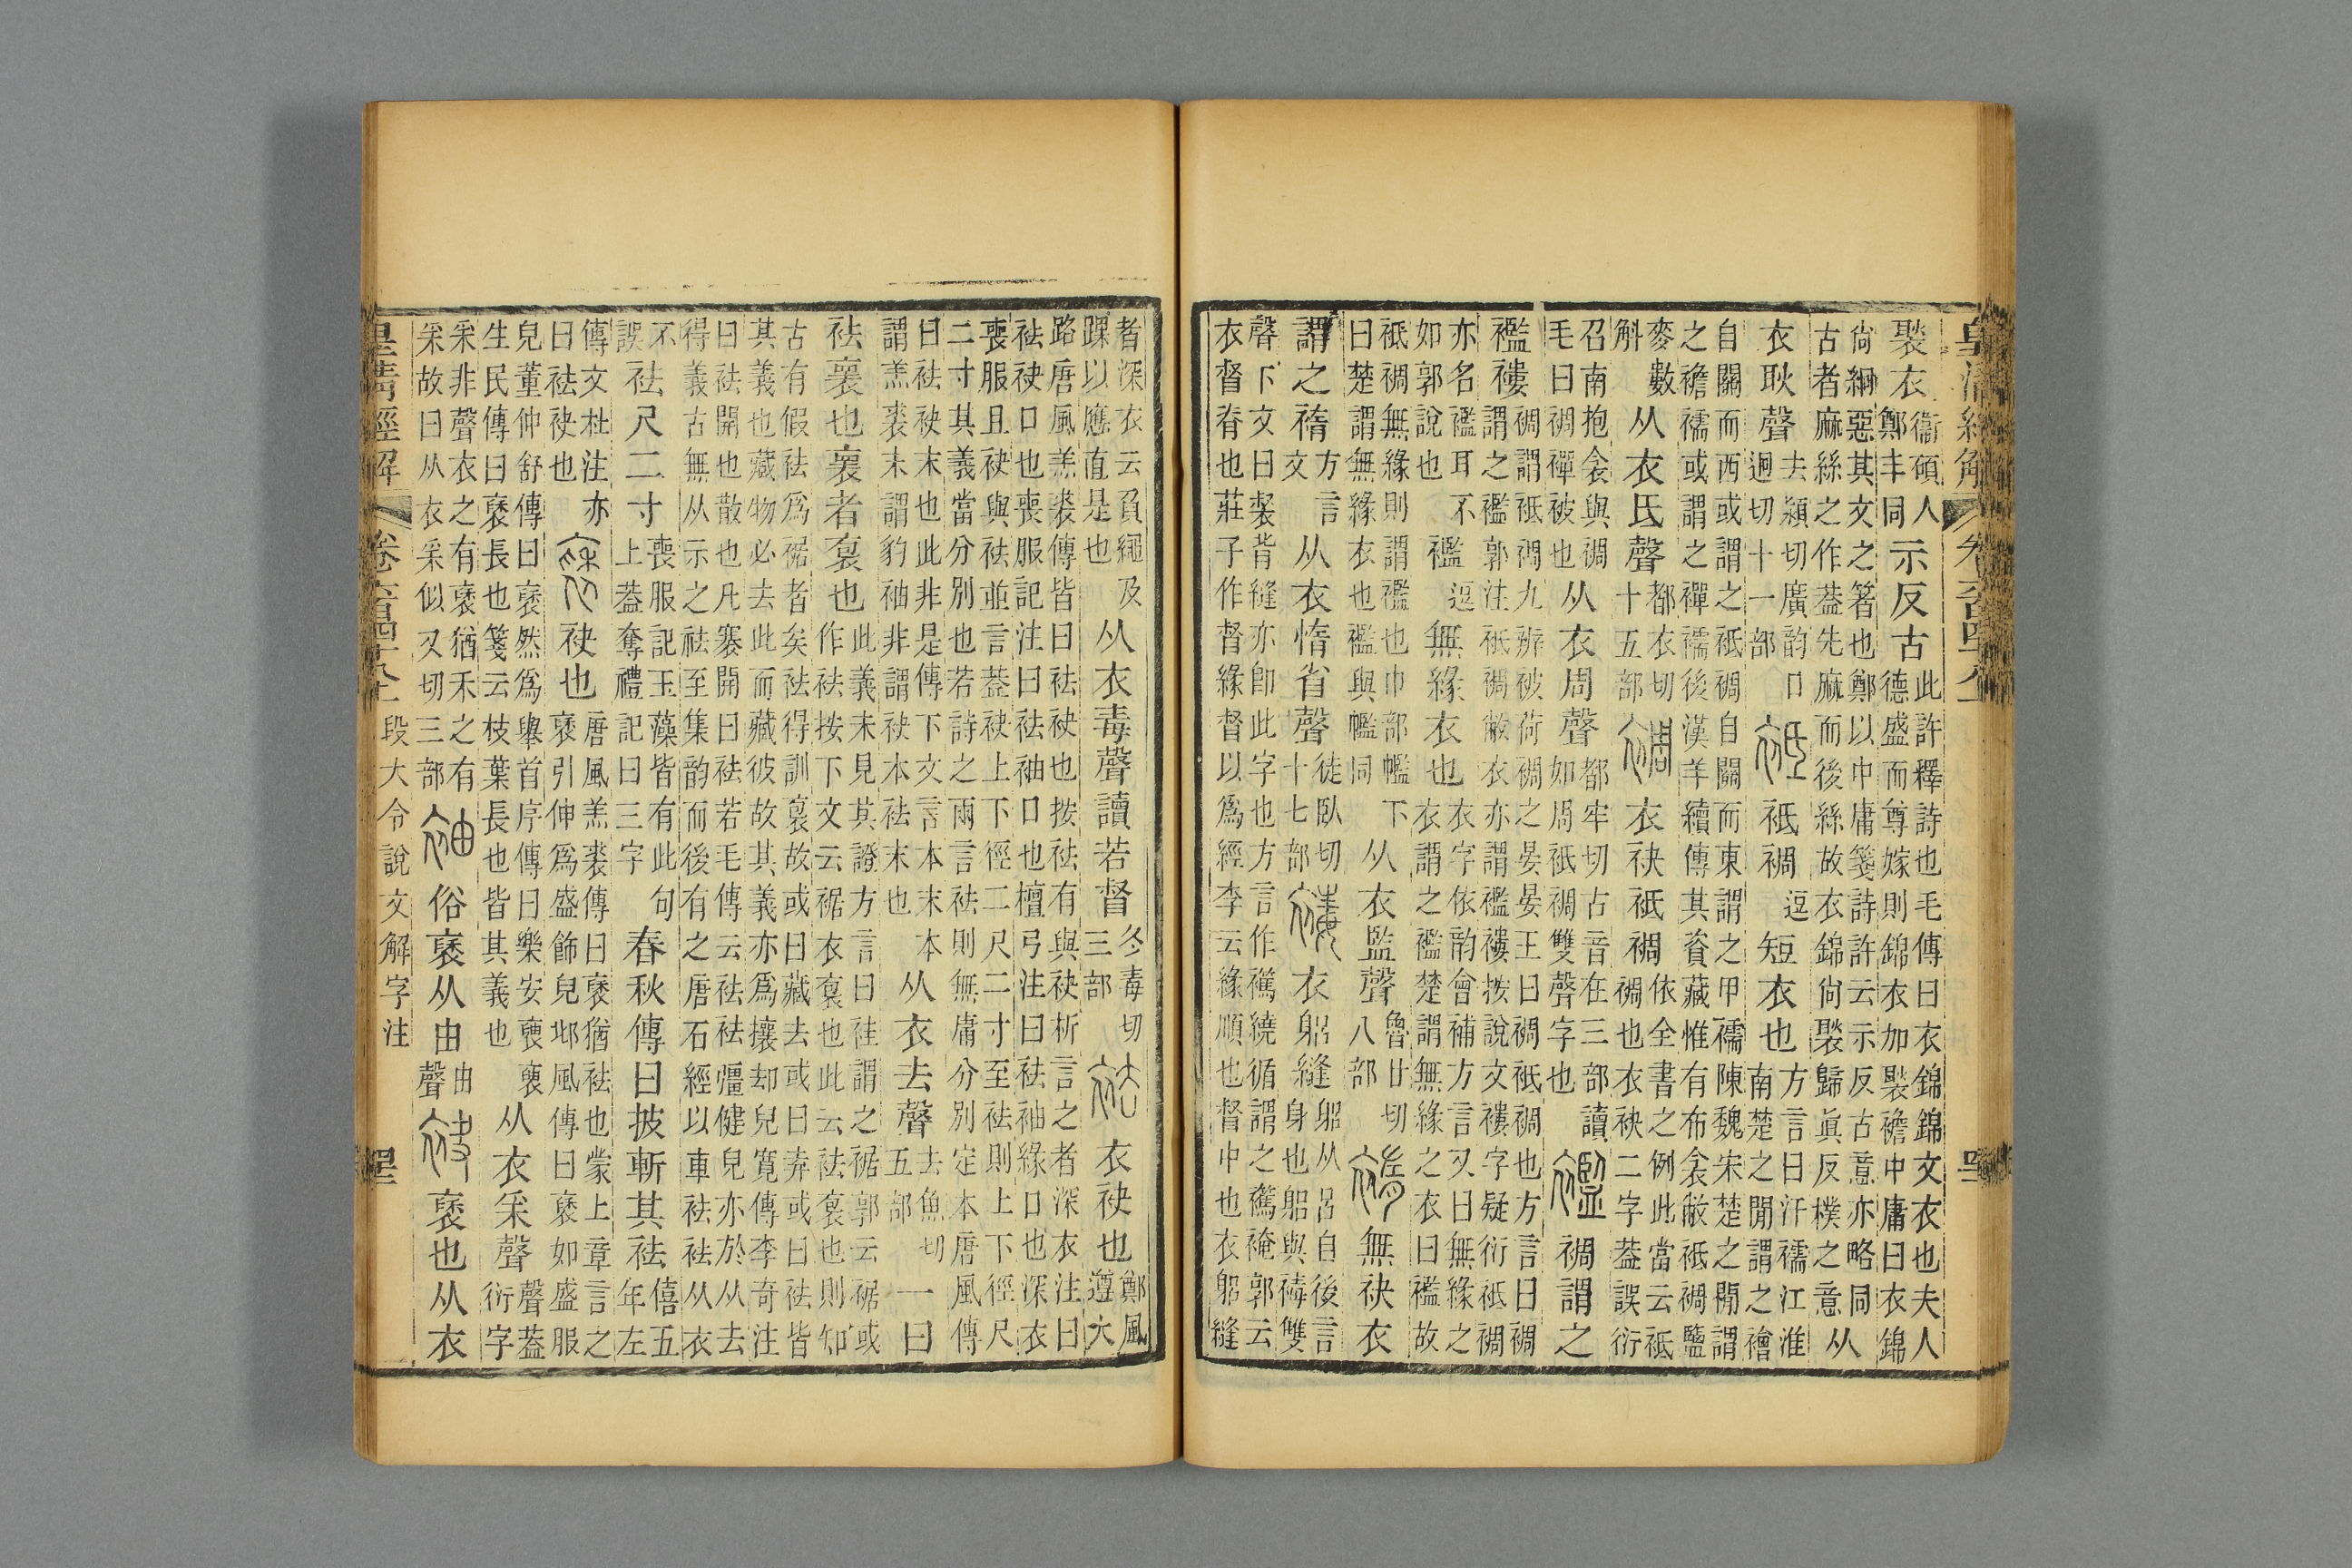 褧衣衞碩人鄭丰同示反古此許釋詩也毛傳曰衣錦錦文衣也夫人德盛而尊嫁則錦衣加褧襜中庸曰衣錦
尙絅惡其文之箸也鄭以中庸箋詩許云示反古意亦略同古者麻絲之作葢先麻而後絲故衣錦尙褧歸眞反樸之意从
衣耿聲去潁切廣韵口迥切十一部袛袛裯逗短衣也方言曰汗襦江淮南楚之閒謂之襘
自關而西或謂之袛裯自關而東謂之甲襦陳魏宋楚之閒謂之襜襦或謂之襌襦後漢羊續傳其資藏惟有布衾敝袛裯鹽
麥數斛从衣氐聲都衣切十五部裯衣袂袛裯依全書之例此當云袛裯也衣袂二字葢誤衍
召南抱衾與裯毛曰裯襌被也从衣周聲都牢切古音在三部讀如周袛裯雙聲字也襤裯謂之
襤褸裯謂袛裯九辨被荷裯之晏晏王曰裯袛裯也方言曰裯謂之襤郭注袛裯敝衣亦謂襤褸按說文褸字疑衍袛裯
亦名襤耳不如郭說也襤逗無緣衣也衣字依韵會補方言又曰無緣之衣謂之襤楚謂無緣之衣曰襤故
袛裯無緣則謂襤也巾部㡮下曰楚謂無緣衣也襤與㡮同从衣監聲魯甘切八部無袂衣
謂之方言文从衣惰省聲徒臥切十七部衣躳縫躳从呂自後言身也躳與雙
聲下文曰裻背縫亦卽此字也方言作繞循謂之裺郭云衣督脊也莊子作督緣督以爲經李云緣順也督中也衣躳縫
者深衣云負繩及踝以應直是也从衣毒聲讀若督冬毒切三部袪衣袂也鄭風遵大
路唐風羔裘傳皆曰袪袂也按袪有與袂析言之者深衣注曰袪袂口也喪服記注曰袪袖口也檀弓注曰袪袖緣口也深衣
喪服且袂與袪並言葢袂上下徑二尺二寸至袪則上下徑尺二寸其義當分別也若詩之兩言袪則無庸分別定本唐風傳
曰袪袂末也此非是傳下文言本末本謂羔裘末謂豹袖非謂袂本袪末也从衣去聲去魚切五部一曰
袪褱也褱者裹也此義未見其證方言曰袿謂之裾郭云裾或作袪按下文云裾衣裹也此云袪裹也則知
古有假袪爲裾者矣袪得訓裹故或曰藏去或曰弆或曰袪皆其義也藏物必去此而藏彼故其義亦爲攘却兒寬傳李奇注
曰袪開也散也凡褰開曰袪若毛傳云袪袪彊健皃亦於从去得義古無从示之祛至集韵而後有之唐石經以車袪袪从衣
不誤袪尺二寸喪服記玉藻皆有此句上葢奪禮記曰三字春秋傳曰披斬其袪僖五年左
傳文杜注亦曰袪袂也褎袂也唐風羔裘傳曰褎猶袪也蒙上章言之褎引伸爲盛飾皃邶風傳曰褎如盛服
皃董仲舒傳曰褎然爲舉首序傳曰樂安褎褎生民傳曰褎長也箋云枝葉長也皆其義也从衣釆聲聲葢衍字
釆非聲衣之有褎猶禾之有釆故曰从衣釆似又切三部袖俗褎从由由聲褎也从衣
皇清經解卷六百四十八上段大令說文解字注